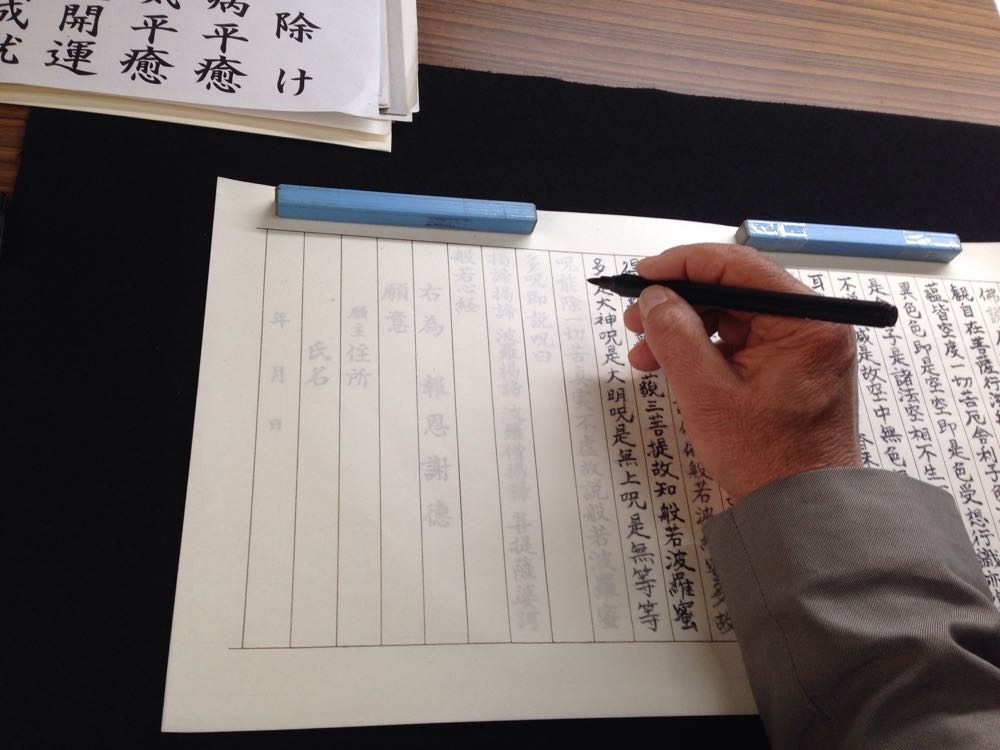 除け
病平癒
気平癒
開運
成就
佛説
観自在菩薩行深
蘊皆空度一切苦厄舎利子
異色色即是空空即是色受想行識亦
是 子是諸法空相不生
不 減是故空中無色
耳
般若波
得 藐三菩提故知般若波羅蜜
多是大神呪是大明呪是無上呪是無等等
呪能除一切苦真実不虚故説般若波羅蜜
多呪即説呪曰
掲諦掲諦 波羅掲諦 波羅僧掲諦 菩提薩婆訶
般若心経
右為 報恩謝徳
願意
願主 住所
氏名
年 月 日